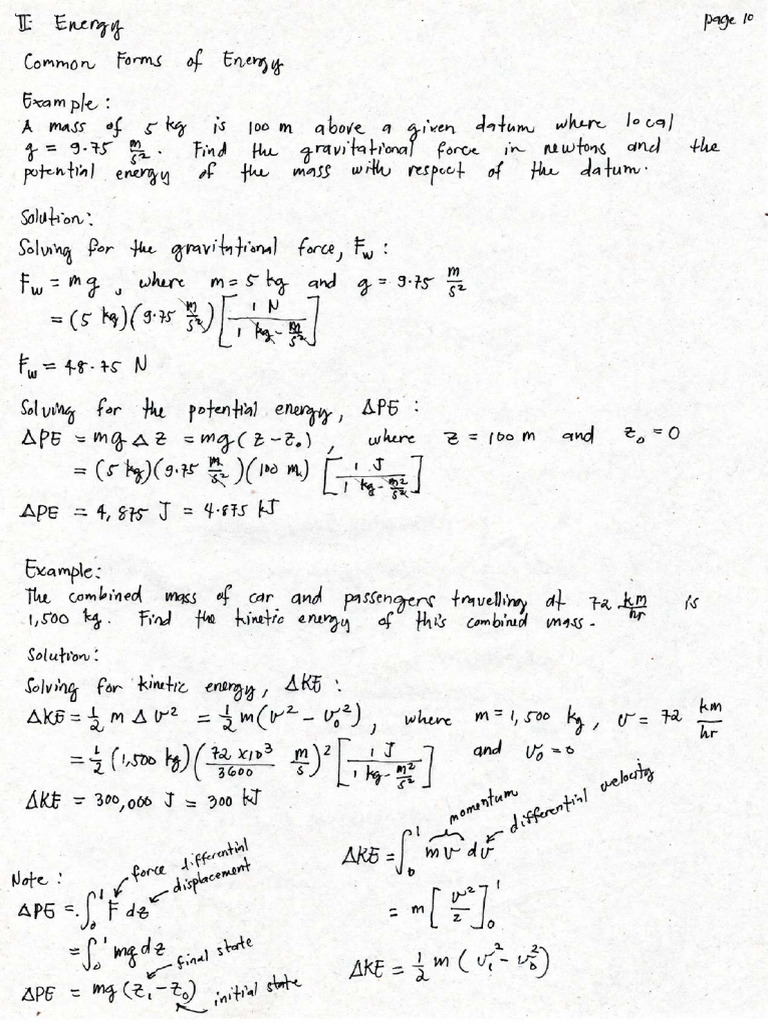 II. Energy
page 10
Common Forms of Energy
Example:
A mass of 5 kg is 100 m above a given datum where local
g = 9.75 m/s². Find the gravitational force in newtons and the
potential energy of the mass with respect of the datum.
Solution:
Solving for the gravitational force, Fw:
Fw = mg, where m = 5 kg and g = 9.75 m/s²
= (5 kg)(9.75 m/s²)[1 N / 1 kg-m/s²]
Fw = 48.75 N
Solving for the potential energy, ΔPE:
ΔPE = mgΔz = mg(z-z₀), where z = 100 m and z₀ = 0
= (5 kg)(9.75 m/s²)(100 m)[1 J / 1 kg-m²/s²]
ΔPE = 4,875 J = 4.875 kJ
Example:
The combined mass of car and passengers travelling at 72 km/hr is
1,500 kg. Find the kinetic energy of this combined mass.
Solution:
Solving for kinetic energy, ΔKE:
ΔKE = 1/2 m Δv² = 1/2 m(v² - v₀²), where m = 1,500 kg, v = 72 km/hr
= 1/2 (1,500 kg)(72 x10³/3600 m/s)²[1 J / 1 kg-m²/s²] and v₀ = 0
ΔKE = 300,000 J = 300 kJ
Note:
force differential
displacement
ΔPE = ∫₀¹ F dz
= ∫₀¹ mg dz
final state
ΔPE = mg (z₁-z₀)
initial state
momentum
differential velocity
ΔKE = ∫₀¹ mv dv
= m[v²/2]₀¹
ΔKE = 1/2 m (v₁² - v₀²)